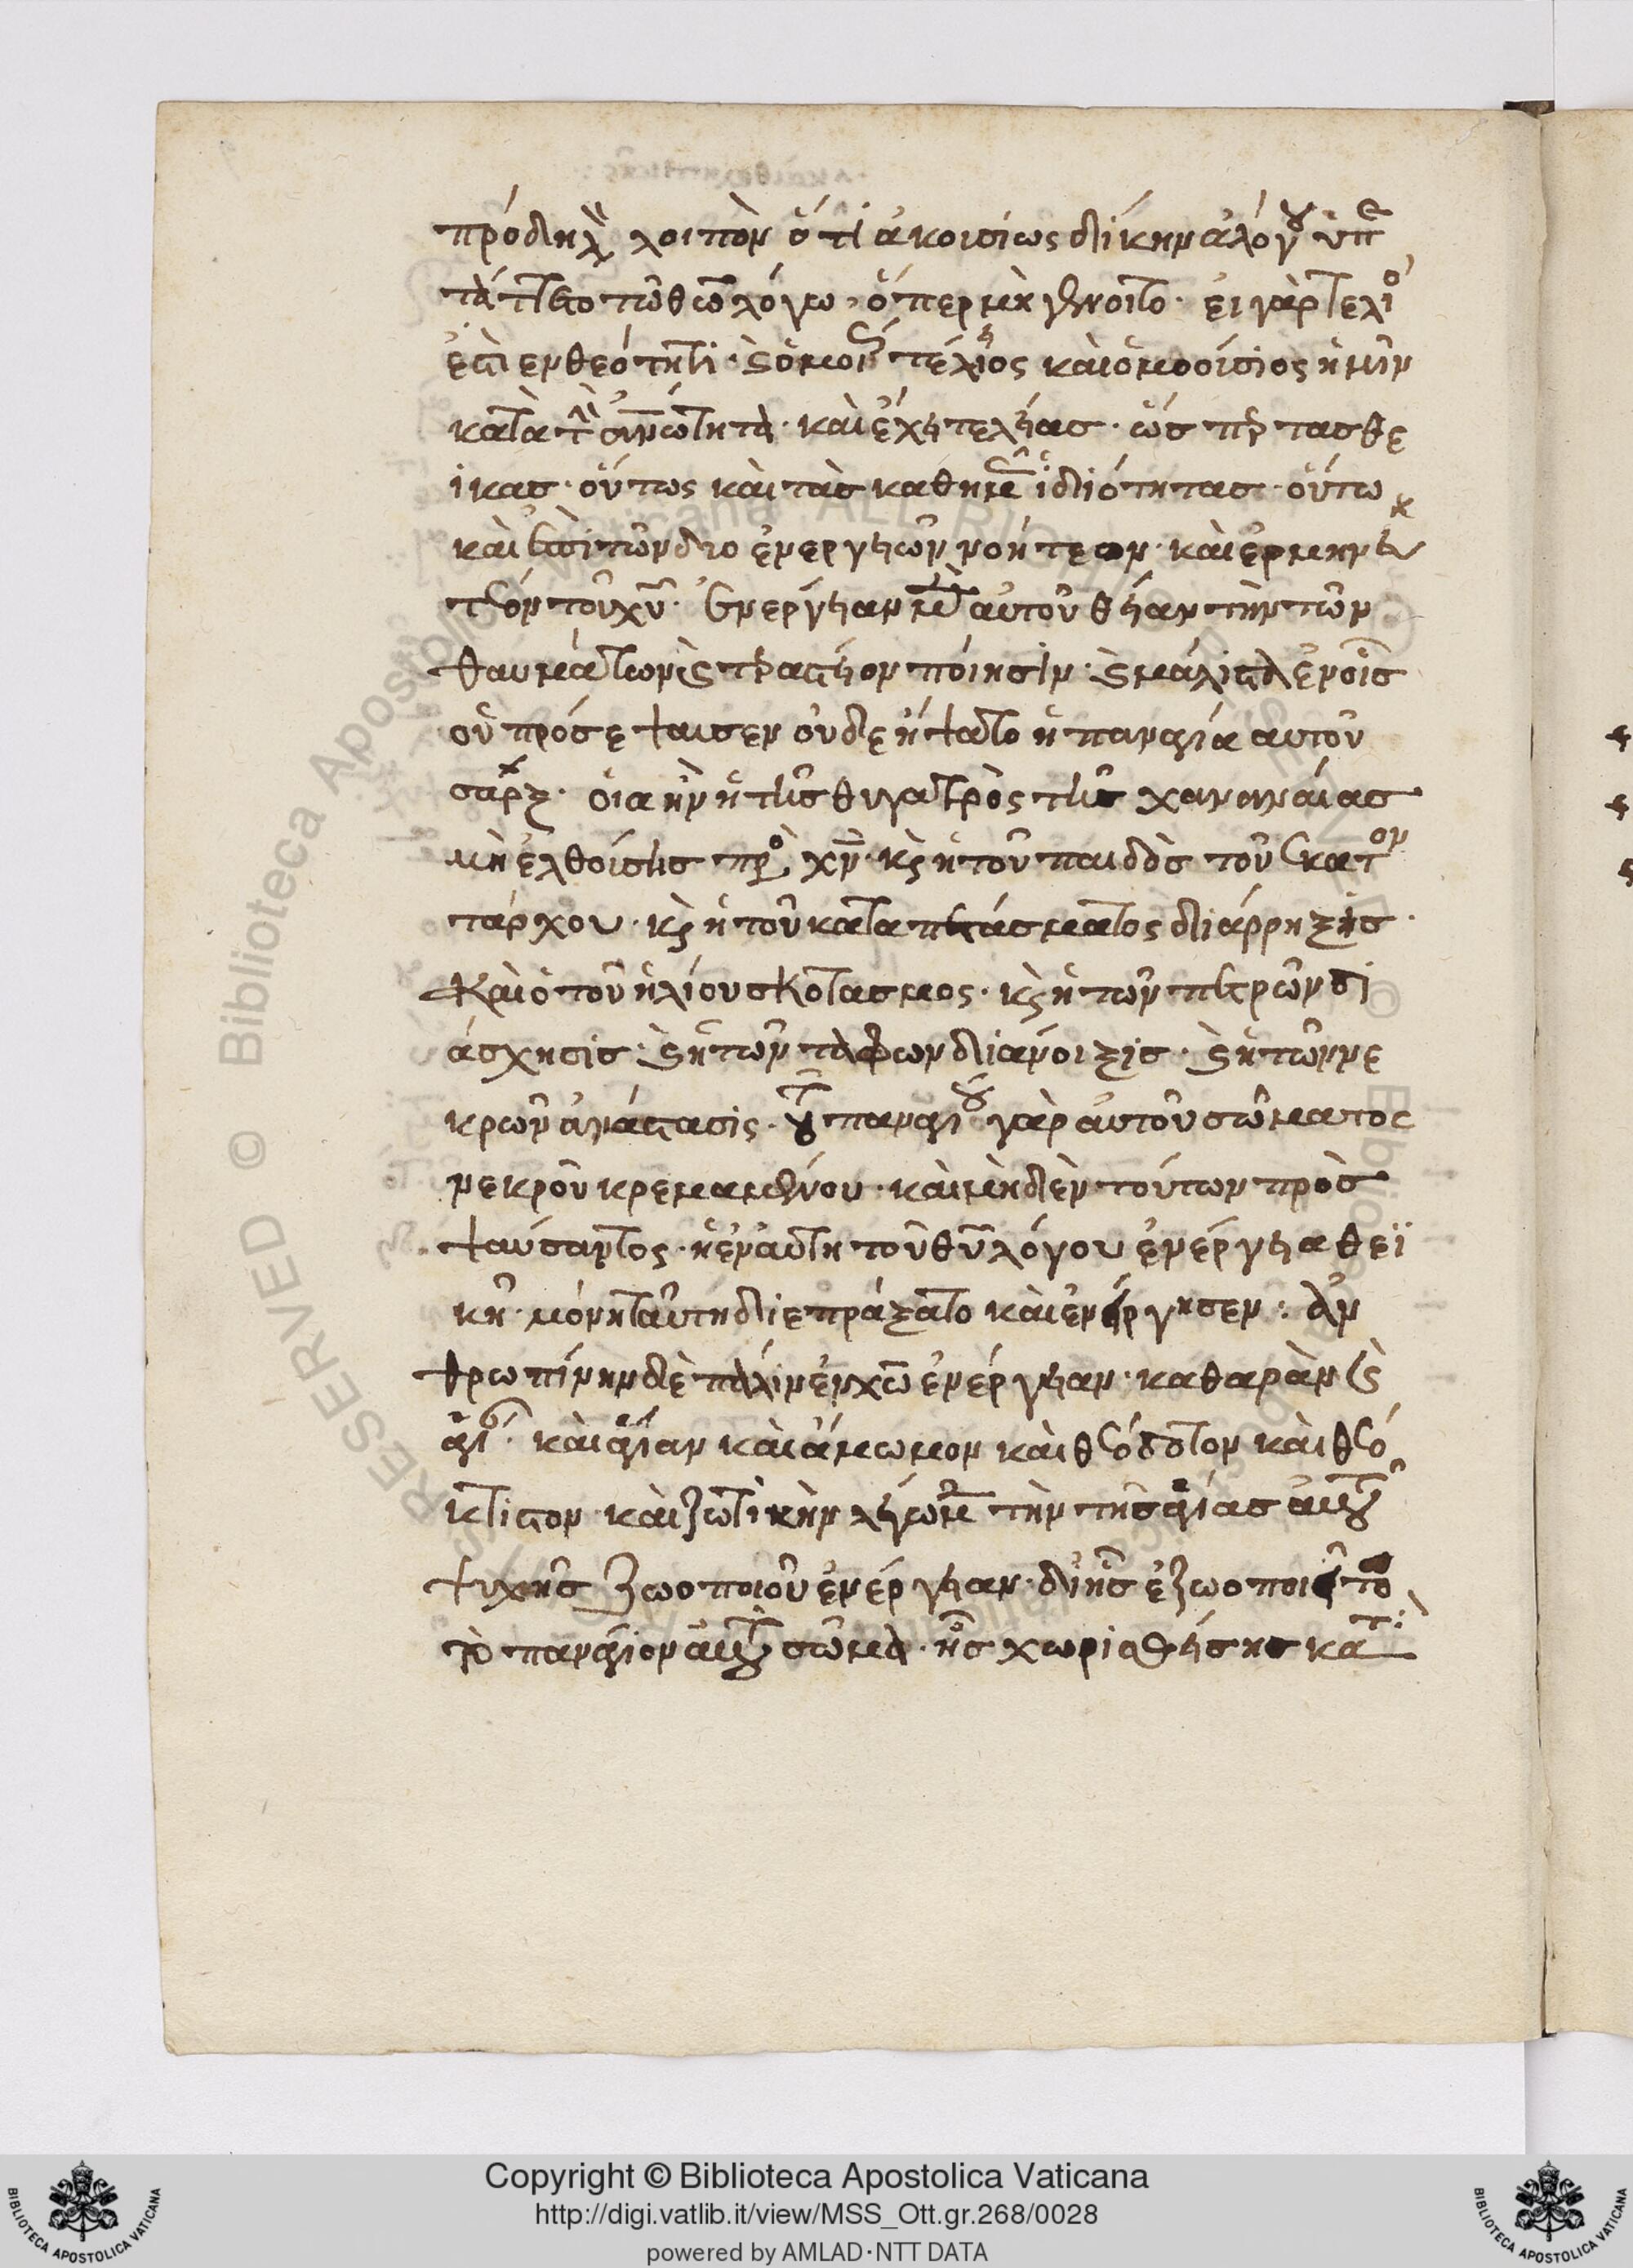 πρόδηλ λοιπὸν ὅτι ἀκουσίως δίκην ἀλόγου ὑπε
τάττετο τῶ θῶ λόγω· ὅπερ μὴ γένοιτο. εἰ γὰρ τέλειο
ἐστι ἐν θεότητι· καὶ ὁμοῦ τέλειος καὶ ὁμοούσιος ἡμῖν
κατὰ τὴν ἀνθρωπότητα· καὶ ἔχει τελείας· ὥσπερ τὰς θε
ικας· οὕτως καὶ τὰς καθημᾶς ἰδιότητας· οὕτω
καὶ ἐπὶ τῶν δύο ἐνεργειῶν νοήτεον· καὶ ἑρμηνευ
τέον τοῦ χυ. ἐνέργειαν μὲν αὐτοῦ θείαν τὴν τῶν
θαυμάτων καὶ τεραστίων ποίησιν· καὶ μάλιστα ἐν οἷς
οὐ πρόσεψαυσεν οὐδε ἥψατο ἡ παναγία αυτοῦ
σάρξ. οἷα ἦν ἡ τῆς θυγατρὸς τῆς χαναναίας
μὴ ἐλθούσης πρὸ χν· κς ἡ τοῦ παιδὸς τοῦ ἑκατον
τάρχου· κς ἡ τοῦ καταπετάσματος διάρρηξις·
Καὶ ὁ τοῦ ἡλίου σκοτασμος· κς ἡ τῶν πετρῶν δι
άσχησις· καὶ ἡ τῶν τάφων διανοιξις· καὶ ἡ τῶν νε
κρῶν ἀνάστασις. τοῦ παναγίου γὰρ αὐτοῦ σώματος
νεκροῦ κρεμαμένου· καὶ μηδὲν τούτων προσ
ψαύσαντος· ἡ ἐν αὐτῆ τοῦ θυ λόγου ἐνέργεια θεϊ
κὴ· μόνη ταῦτη διεπράξατο καὶ ἐνέργησεν: ἀν
θρωπίνην δὲ πάλιν ἐν χω ἐνέργειαν· καθαρὰν καὶ
ἁγί· καὶ ἁγίαν καὶ ἄμωμον καὶ θεόδοτον καὶ θεό
κτιστον· καὶ ζωτικὴν λέγωμεν τὴν τῆς ἁγίας αὐτοῦ
ψυχῆς ζωοποιοῦ ἐνέργειαν· δι ἧς ἐζωοποιεῖτο
τὸ παναγιον αὐτοῦ σῶμα· ἧς χωρισθείσης κατ
Copyright © Biblioteca Apostolica Vaticana
http://digi.vatlib.it/view/MSS_Ott.gr.268/0028
powered by AMLAD·NTT DATA